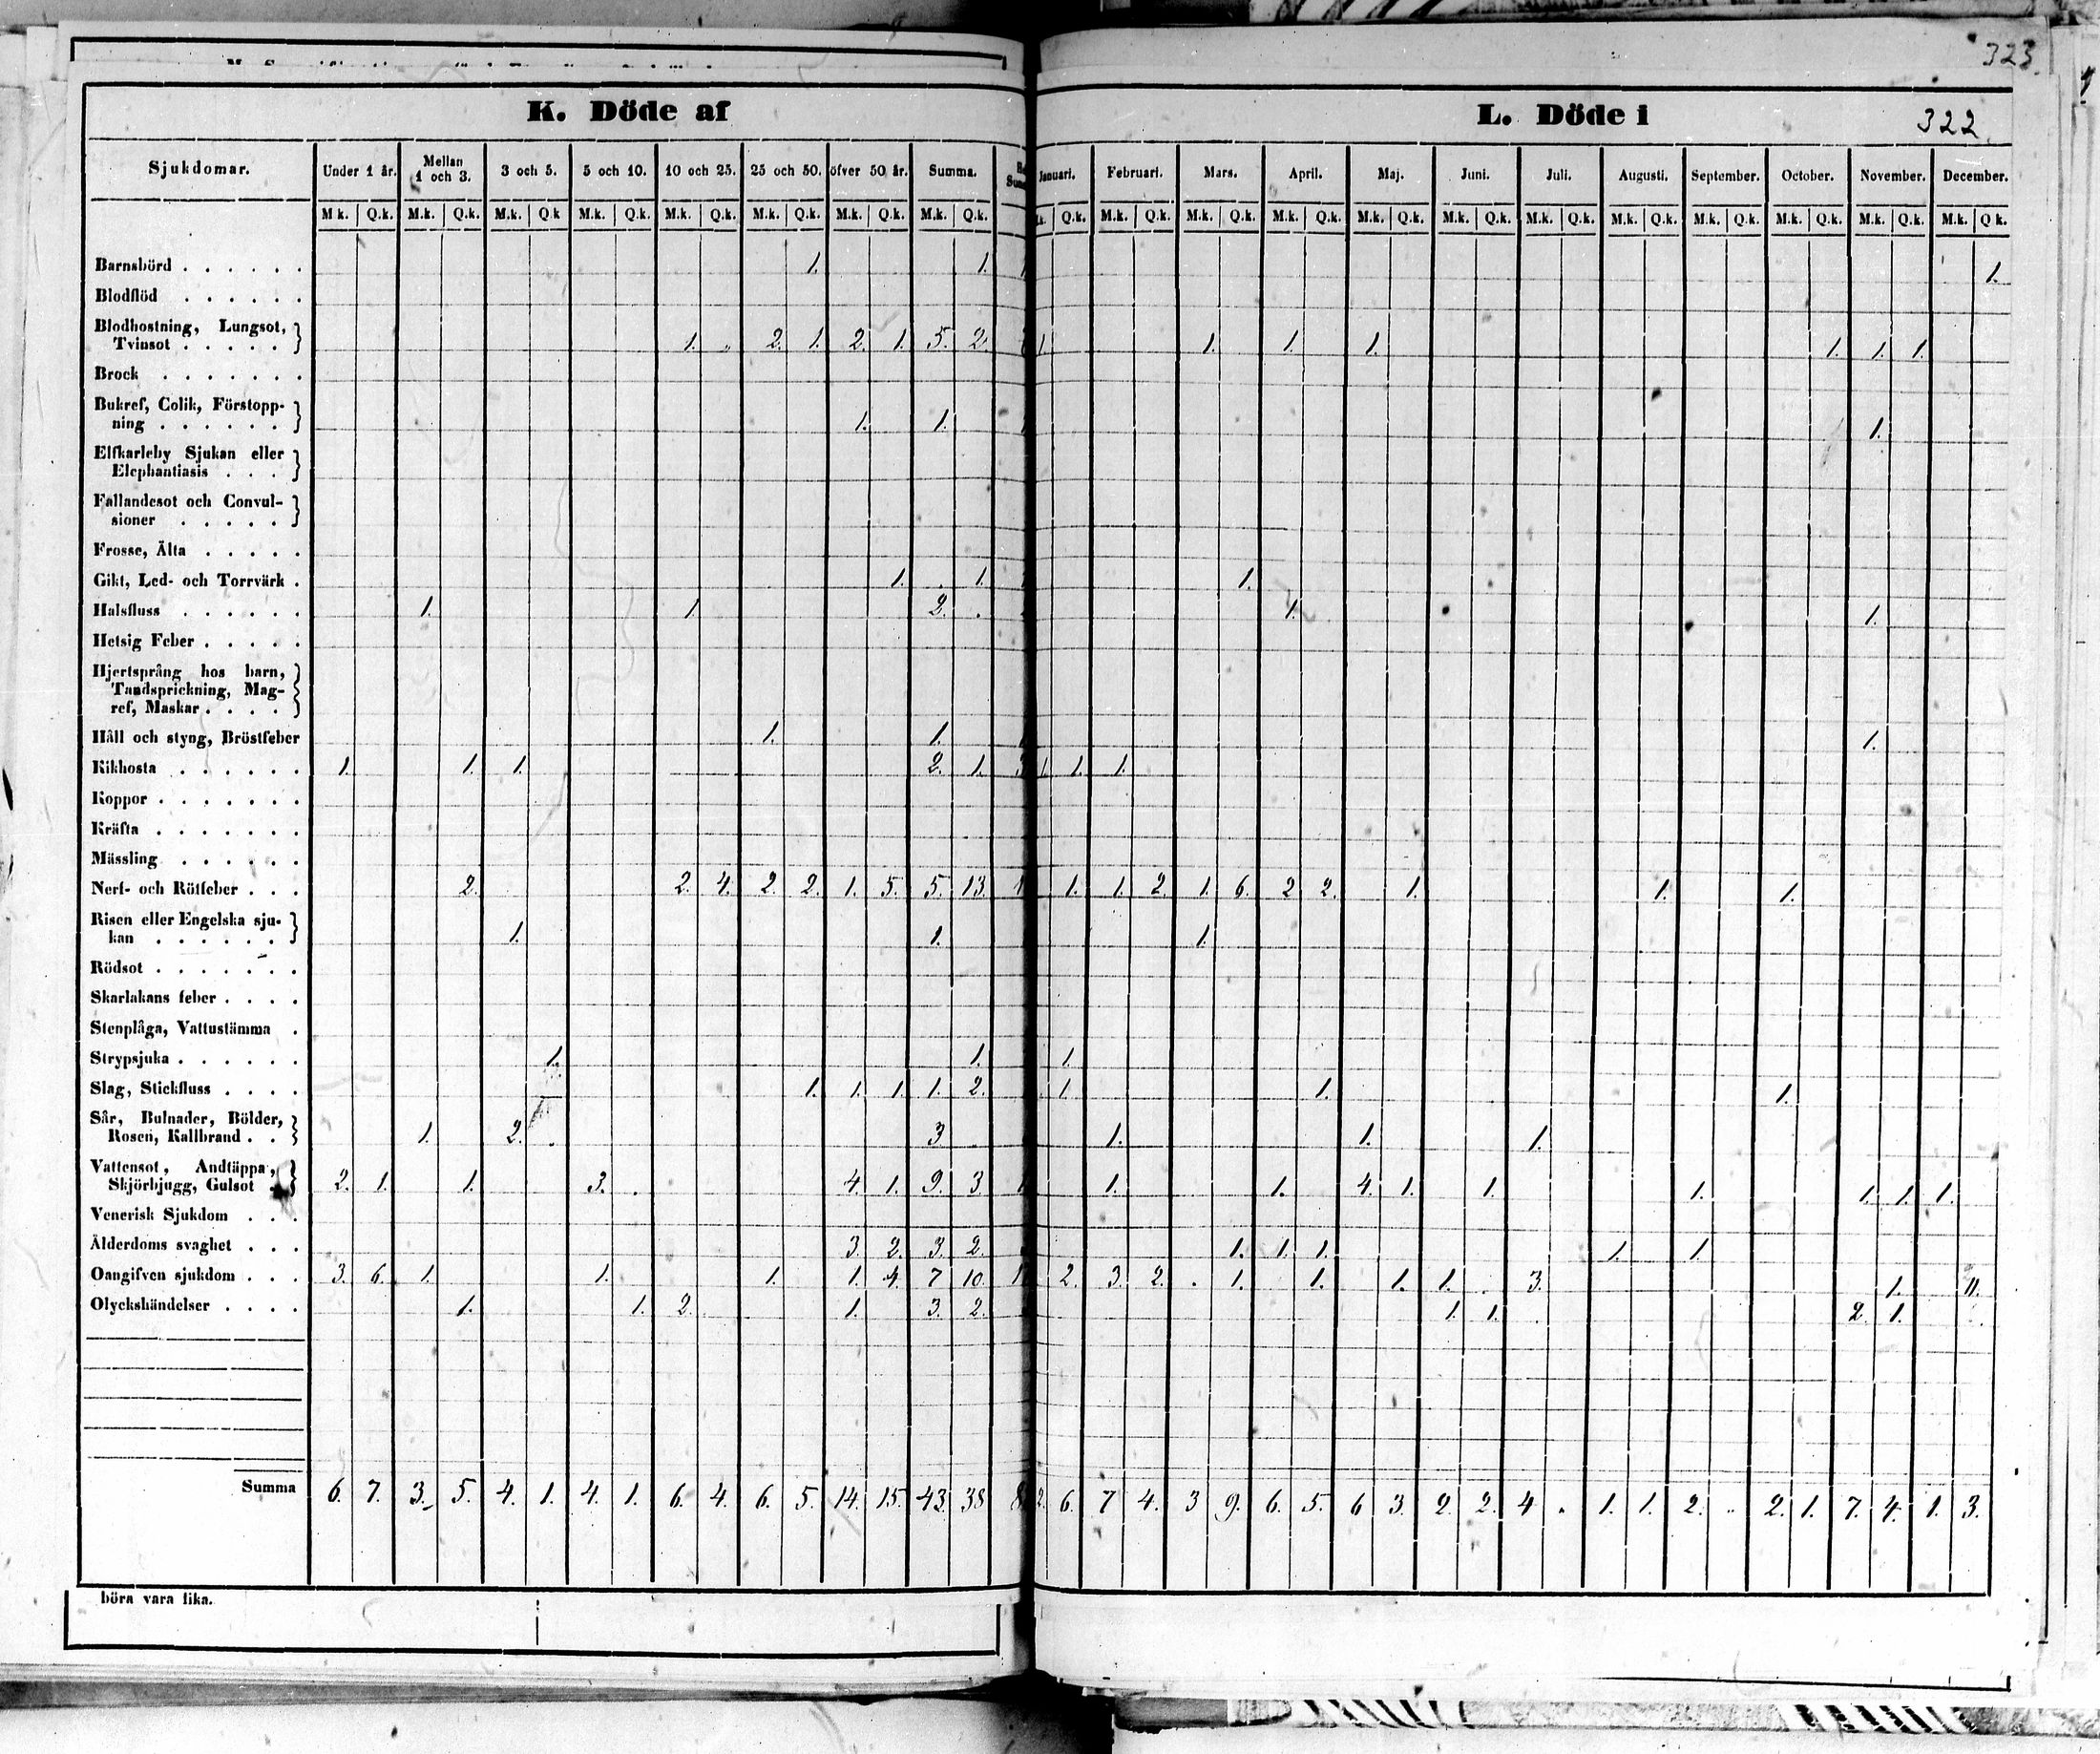 323.
K. Döde af
L. Döde i
322
Sjukdomar. Under 1 år. Mellan 1 och 3. 3 och 5. 5 och 10. 10 och 25. 25 och 50. öfver 50 år. Summa. Januari. Februari. Mars. April. Maj. Juni. Juli. Augusti. September. October. November. December.
M.k. Q.k. M.k. Q.k. M.k. Q.k M.k. Q.k. M.k. Q.k. M.k. Q.k. M.k. Q.k. M.k. Q.k. Q.k. M.k. Q.k. M.k. Q.k. M.k. Q.k. M.k. Q.k. M.k. Q.k. M.k. Q.k. M.k. Q.k. M.k. Q.k. M.k. Q.k. M.k. Q.k. M.k. Q k.
Barnsbörd . . . . . . 1. 1. 1.
Blodflöd . . . . . .
Blodhostning, Lungsot,
Tvinsot . . . . . 1. 2. 1. 2. 1. 5. 2. 1. 1. 1. 1. 1. 1. 1.
Brock . . . . . . .
Bukref, Colik, Förstopp-
ning . . . . . . 1. 1. 1.
Elfkarleby Sjukan eller
Elephantiasis . . .
Fallandesot och Convul-
sioner . . . . .
Frosse, Älta . . . . .
Gikt, Led- och Torrvärk . 1. 1. 1.
Halsfluss . . . . . . 1. 1. 2. 1. 1.
Hetsig Feber . . . . .
Hjertsprång hos barn,
Tandsprickning, Mag-
ref, Maskar . . . .
Håll och styng, Bröstfeber 1. 1. 1.
Kikhosta . . . . . . 1. 1. 1. 2. 1. 3 1. 1. 1.
Koppor . . . . . . .
Kräfta . . . . . . .
Mässling . . . . . .
Nerf- och Rötfeber . . . 2. 2. 4. 2. 2. 1. 5. 5. 13. 1. 1. 2. 1. 6. 2 2. 1. 1. 1.
Risen eller Engelska sju-
kan . . . . . . 1. 1. 1.
Rödsot . . . . . . .
Skarlakans feber . . . .
Stenplåga, Vattustämma .
Strypsjuka . . . . . . 1. 1. 1.
Slag, Stickfluss . . . . 1. 1. 1. 1. 2. 1. 1. 1.
Sår, Bulnader, Bölder,
Rosen, Kallbrand . . 1. 2. 3 1. 1. 1.
Vattensot, Andtäppa,
Skjörbjugg, Gulsot . 2. 1. 1. 3. 4. 1. 9. 3. 1. 1. 4. 1. 1. 1. 1. 1. 1.
Venerisk Sjukdom . . .
Ålderdoms svaghet . . . 3. 2. 3. 2. 1. 1. 1. 1. 1.
Oangifven sjukdom . . . 3. 6. 1. 1. 1. 1. 4. 7 10. 2. 3. 2. 1. 1. 1. 1. 3. 1.
Olyckshändelser . . . . 1. 1. 2. 1. 3. 2. 1. 1. 2. 1.
Summa 6. 7. 3. 5. 4. 1. 4. 1. 6. 4. 6. 5. 14. 15. 43. 38 8 2. 6. 7 4. 3 9. 6. 5. 6 3. 2. 2. 4 1. 1. 2. 2. 1. 7. 4. 1. 3.
böra vara lika.